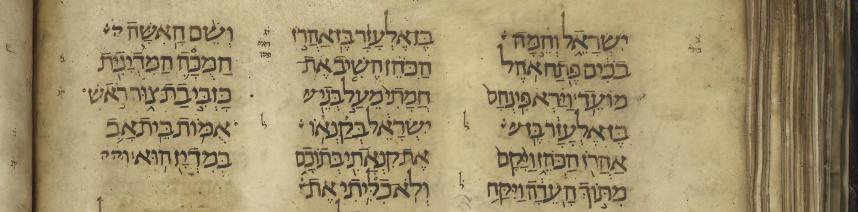 ישראל והמה
בכים פתח אהל
מועד וירא פינחס
בן אלעזר בן
אהרן הכהן ויקם
מתוך העדה ויקח
בן אלעזר בן אהרן
הכהן השיב את
חמתי מעל בני
ישראל בקנאו
את קנאתי בתוכם
ולא כליתי את
ושם האשה
המכה המדינית
כזבי בת צור ראש
אמות בית אב
במדין הוא